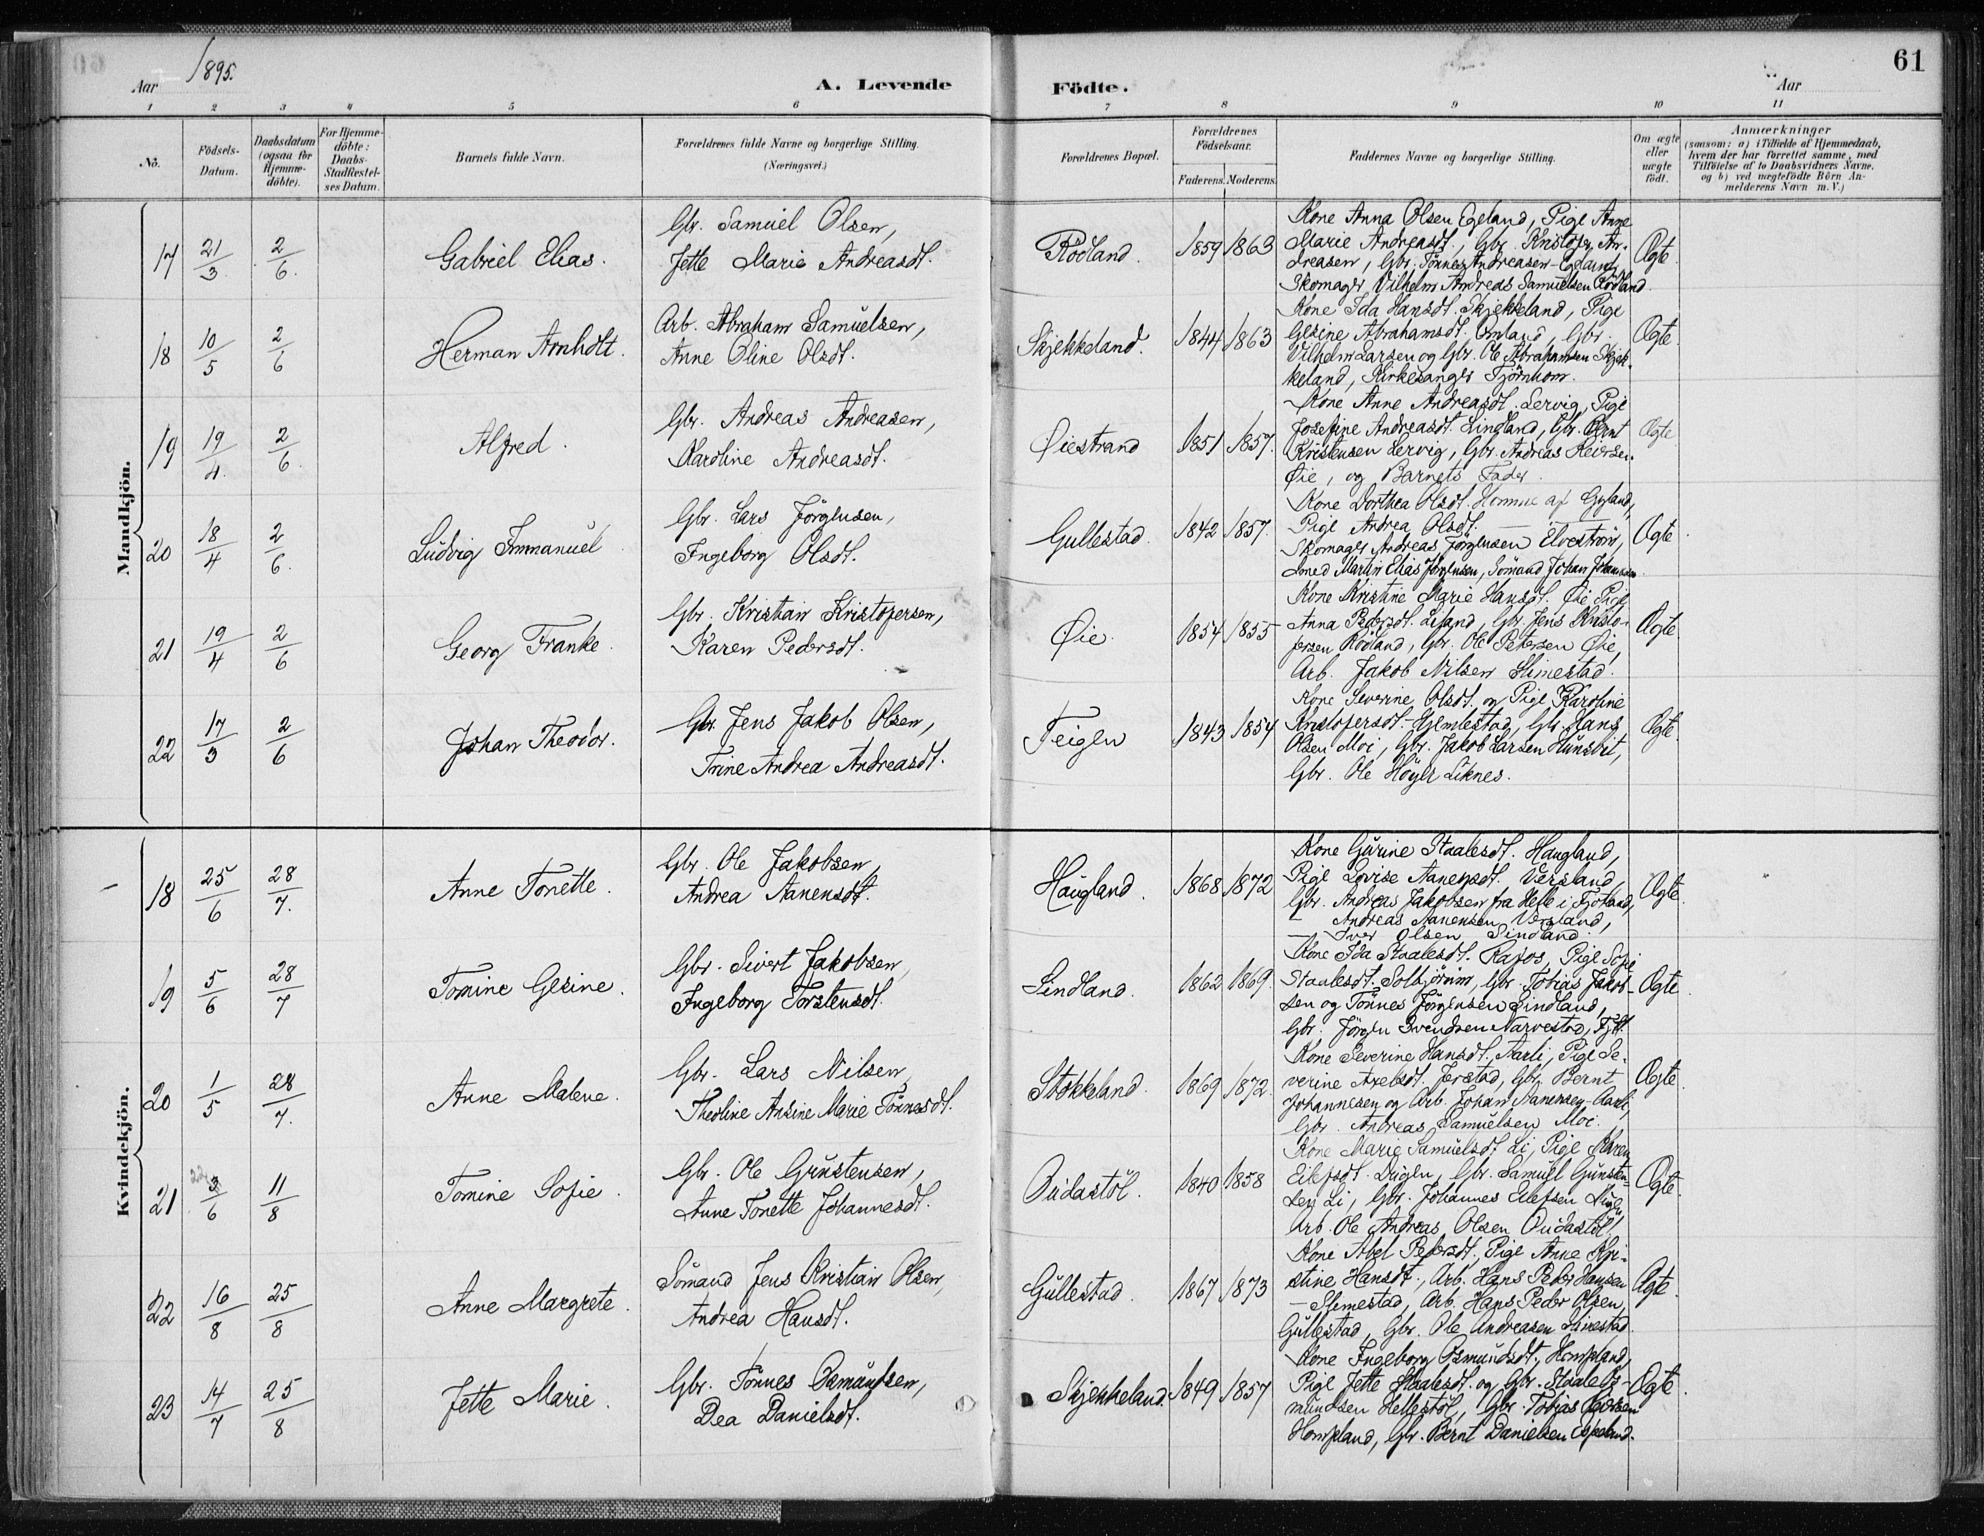 61
Aar 1895.
A. Levende Födte.
Aar
1 2 3 4 5 6 7 8 9 10 11
No.
Födsels-Datum.
Daabsdatum (ogsaa for Hjemme-döbte).
For Hjemme-döbte: Daabs-Stadfæstel-ses Datum.
Barnets fulde Navn.
Forældrenes fulde Navne og borgerlige Stilling.
(Næringsvei.)
Forældrenes Bopæl.
Forældrenes Födselsaar.
Faderens. Moderens.
Faddernes Navne og borgerlige Stilling.
Om ægte eller uægte födt.
Anmærkninger
(saasom: a) i Tilfælde af Hjemmedaab, hvem der har forrettet samme, med Tilföielse af to Daabsvidners Navne, og b) ved uægtefödte Börn An-melderens Navn m. V.)
Mandkjön.
17 21/3 2/6 Gabriel Elias.
Gbr. Samuel Olsen,
Jette Marie Andreasdt.
Rödland. 1859 1863
Kone Anna Olsen Egeland, Pige Anne
Marie Andreasdt., Gbr. Kristofer An-
dreasen, Gbr. Tönnes Andreasen Egeland,
Skomager Vilhelm Andreas Samuelsen Rödland
Ægte
18 10/5 2/6 Herman Arnholt.
Arb. Abraham Samuelsen,
Anne Oline Olsdt.
Skjekkeland. 1844 1863
Kone Ida Hansdt. Skjekkeland, Pige
Gesine Abrahamsdt. Omland, Gbr.
Vilhelm Larsen og Gbr. Ole Abrahamsen Skjek-
keland, Kirkesanger Tjörnhom.
Ægte.
19 19/4 2/6 Alfred.
Gbr. Andreas Andreasen,
Karoline Andreasdt.
Øiestrand 1851 1857.
Kone Anne Andreasdt. Lervig, Pige
Josefine Andreasdt. Lindland, Gbr. Bernt
Kristensen Lervig, Gbr. Andreas Reiersen
Øie, og Barnets Fader.
Ægte
20 18/4 2/6 Ludvig Immanuel
Gbr. Lars Jörgensen,
Ingeborg Olsdt.
Gullestad. 1842 1857.
Kone Dorthea Olsdt. Homme af Gyland,
Pige Andrea Olsdt. —
Skomager Andreas Jörgensen Elveström,
Smed Martin Elias Jörgensen, Sömand Johan Johansen
Ægte
21 19/4 2/6 Georg Franke.
Gbr. Kristian Kristofersen,
Karen Pedersdt.
Øie. 1854 1855
Kone Kristine Marie Hansdt. Øie, Pige
Anna Pedersdt. Lisand, Gbr. Jens Kristo-
fersen Rödland, Gbr. Ole Petersen Øie,
Arb. Jakob Nilsen Slimestad.
Ægte
22 17/3 2/6 Johan Theodor.
Gbr. Jens Jakob Olsen,
Trine Andrea Andreasdt.
Feigen 1843 1854
Kone Severine Olsdt. og Pige Karoline
Kristofersdt. Hjemlestad, Gbr. Hans
Olsen Moi, Gbr. Jakob Larsen Hunsbet,
Gbr. Ole Höyer Liknes.
Ægte.
Kvindekjön.
18 25/6 28/7. Anne Tonette.
Gbr. Ole Jakobsen,
Andrea Aanensdt.
Haugland. 1868 1872
Kone Gurine Staalesdt. Haugland,
Pige Lovise Aanensdt. Versland,
Gbr. Andreas Jakobsen fra Helle i Fjotland,
— Andreas Aanensen Versland,
— Iver Olsen Sindland.
Ægte.
19 5/6 28/7 Tomine Gesine.
Gbr. Sivert Jakobsen,
Ingeborg Torstensdt.
Sindland. 1862 1869.
Kone Ida Staalesdt. Rafos, Pige Sofie
Staalesdt. Solbjörum, Gbr. Tobias Jakob-
sen og Tönnes Jörgensen Sindland,
Gbr. Jörgen Svendsen Narvestad, Fjotl.
Ægte
20 1/5 28/7. Anne Malene.
Gbr. Lars Nilsen,
Theoline Ansine Marie Tönnesdt.
Stokkeland. 1869 1872.
Kone Severine Hansdt. Aarli, Pige Se-
verine Axelsdt. Jerstad, Gbr. Bernt
Johannesen og Arb. Johan Aanensen Aarli,
Gbr. Andreas Samuelsen Moi.
Ægte.
21 3/6 11/8 Tomine Sofie.
Gbr. Ole Gunstensen,
Anne Tonette Johannesdt.
Oudastöl. 1840 1858
Kone Marie Samuelsdt. Li, Pige Karen
Eilefsdt. Dugen, Gbr. Samuel Gunsten-
sen Li, Gbr. Johannes Eilefsen
Arb. Ole Andreas Olsen Oudastöl.
Ægte.
22 16/8 25/8 Anne Margrete.
Sömand Jens Kristian Olsen,
Andrea Hansdt.
Gullestad. 1867 1873
Kone Abel Pedersdt., Pige Anne Kri-
stine Hansdt., Arb. Hans Peder Hansen
— Slimestad, Arb. Hans Peder Olsen
Gullestad, Gbr. Ole Andreasen Slimestad.
Ægte.
23 14/7 25/8 Jette Marie.
Gbr. Tönnes Osmundsen,
Dea Danielsdt.
Skjekkeland. 1849 1857
Kone Ingeborg Osmundsdt. Hompland,
Pige Jette Staalesdt. og Gbr. Staale Os-
mundsen Hellestöl, Gbr. Tobias Pedersen
Hompland, Gbr. Bernt Danielsen Espeland.
Ægte.